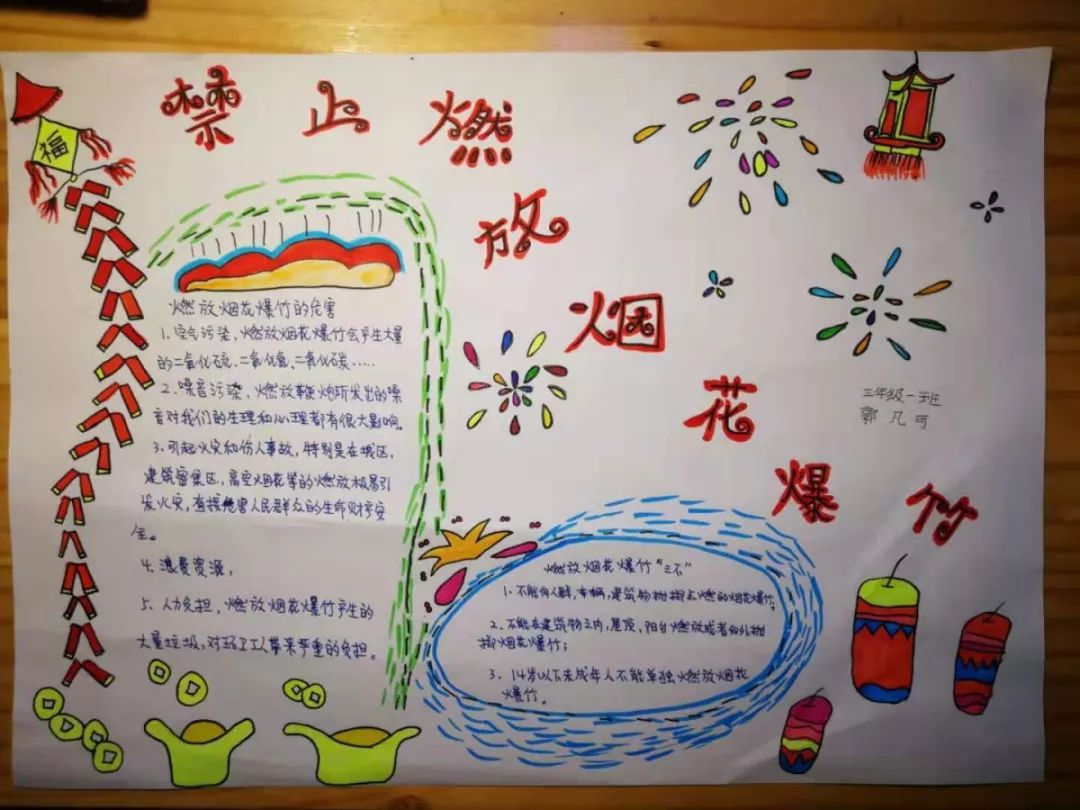 禁止燃放烟花爆竹
福
三年级一班
郭凡可
燃放烟花爆竹的危害
1. 空气污染，燃放烟花爆竹会产生大量
的二氧化硫、二氧化氮、二氧化碳……
2. 噪音污染，燃放鞭炮所发出的噪
音对我们的生理和心理都有很大影响。
3. 引起火灾和伤人事故，特别是在城区，
建筑密集区，高空烟花等的燃放极易引
发火灾，直接危害人民群众的生命财产安
全。
4. 浪费资源，
5. 人力负担，燃放烟花爆竹产生的
大量垃圾，对环卫工人带来严重的负担。
燃放烟花爆竹“三不”
1、不能向人群，车辆，建筑物抛掷点燃的烟花爆竹；
2、不能在建筑物之内，屋顶，阳台燃放或者向外抛
掷烟花爆竹；
3、14岁以下未成年人不能单独燃放烟花
爆竹。